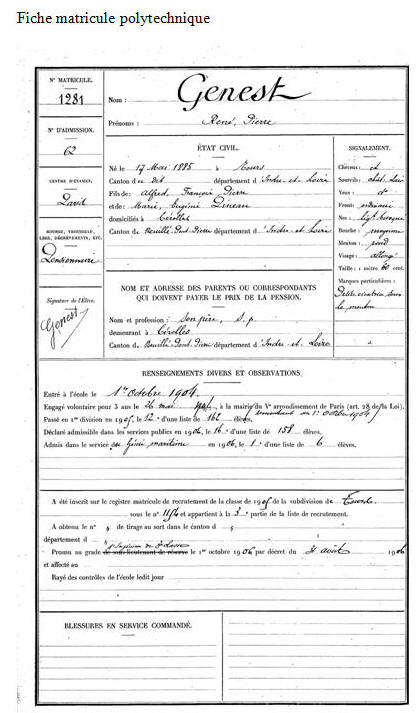 Fiche matricule polytechnique
N° MATRICULE.
1281
N° D'ADMISSION.
62
CENTRE D'EXAMEN.
Paris
BOURSE, TROUSSEAU,
LIBR., DÉGRÈVEMENTS, ETC.
Pensionnaire
Signature de l'Élève.
Genest
Nom : Genest
Prénoms : René, Pierre
ÉTAT CIVIL.
Né le 17 Mai 1885 à Tours
Canton du dit département d'Indre-et-Loire
Fils de : Alfred, François, Pierre
et de : Marie, Eugénie
domiciliés à Cérelles
Canton de Neuillé-Pont-Pierre département d'Indre-et-Loire
NOM ET ADRESSE DES PARENTS OU CORRESPONDANTS
QUI DOIVENT PAYER LE PRIX DE LA PENSION.
Nom et profession : Son père, s.p.
demeurant à Cérelles
Canton de Neuillé-Pont-Pierre département d'Indre-et-Loire
SIGNALEMENT.
Cheveux : et
Sourcils : chât. clair
Yeux : d°
Front : ordinaire
Nez : légt busqué
Bouche : moyenne
Menton : rond
Visage : allongé
Taille : 1 mètre 60 cent.
Marques particulières :
Petite cicatrice sous
le menton
RENSEIGNEMENTS DIVERS ET OBSERVATIONS.
Entré à l'école le 1er Octobre 1904
Engagé volontaire pour 3 ans le 26 mai à la mairie du Ve arrondissement de Paris (art. 28 de la Loi).
Passé en 1re division en 1905 le 12e d'une liste de 162 élèves.
Déclaré admissible dans les services publics en 1906, le 16e d'une liste de 158 élèves.
Admis dans le service du Génie maritime en 1906, le 1er d'une liste de 6 élèves.
A été inscrit sur le registre matricule de recrutement de la classe de 1905 de la subdivision de Tours
sous le n° 1154 et appartient à la 3e partie de la liste de recrutement.
A obtenu le n° " de tirage au sort dans le canton d "
département d "
Promu au grade de sous-lieutenant de réserve le 1er octobre 1906 par décret du 31 août 1906
et affecté au
Rayé des contrôles de l'école ledit jour
BLESSURES EN SERVICE COMMANDÉ.